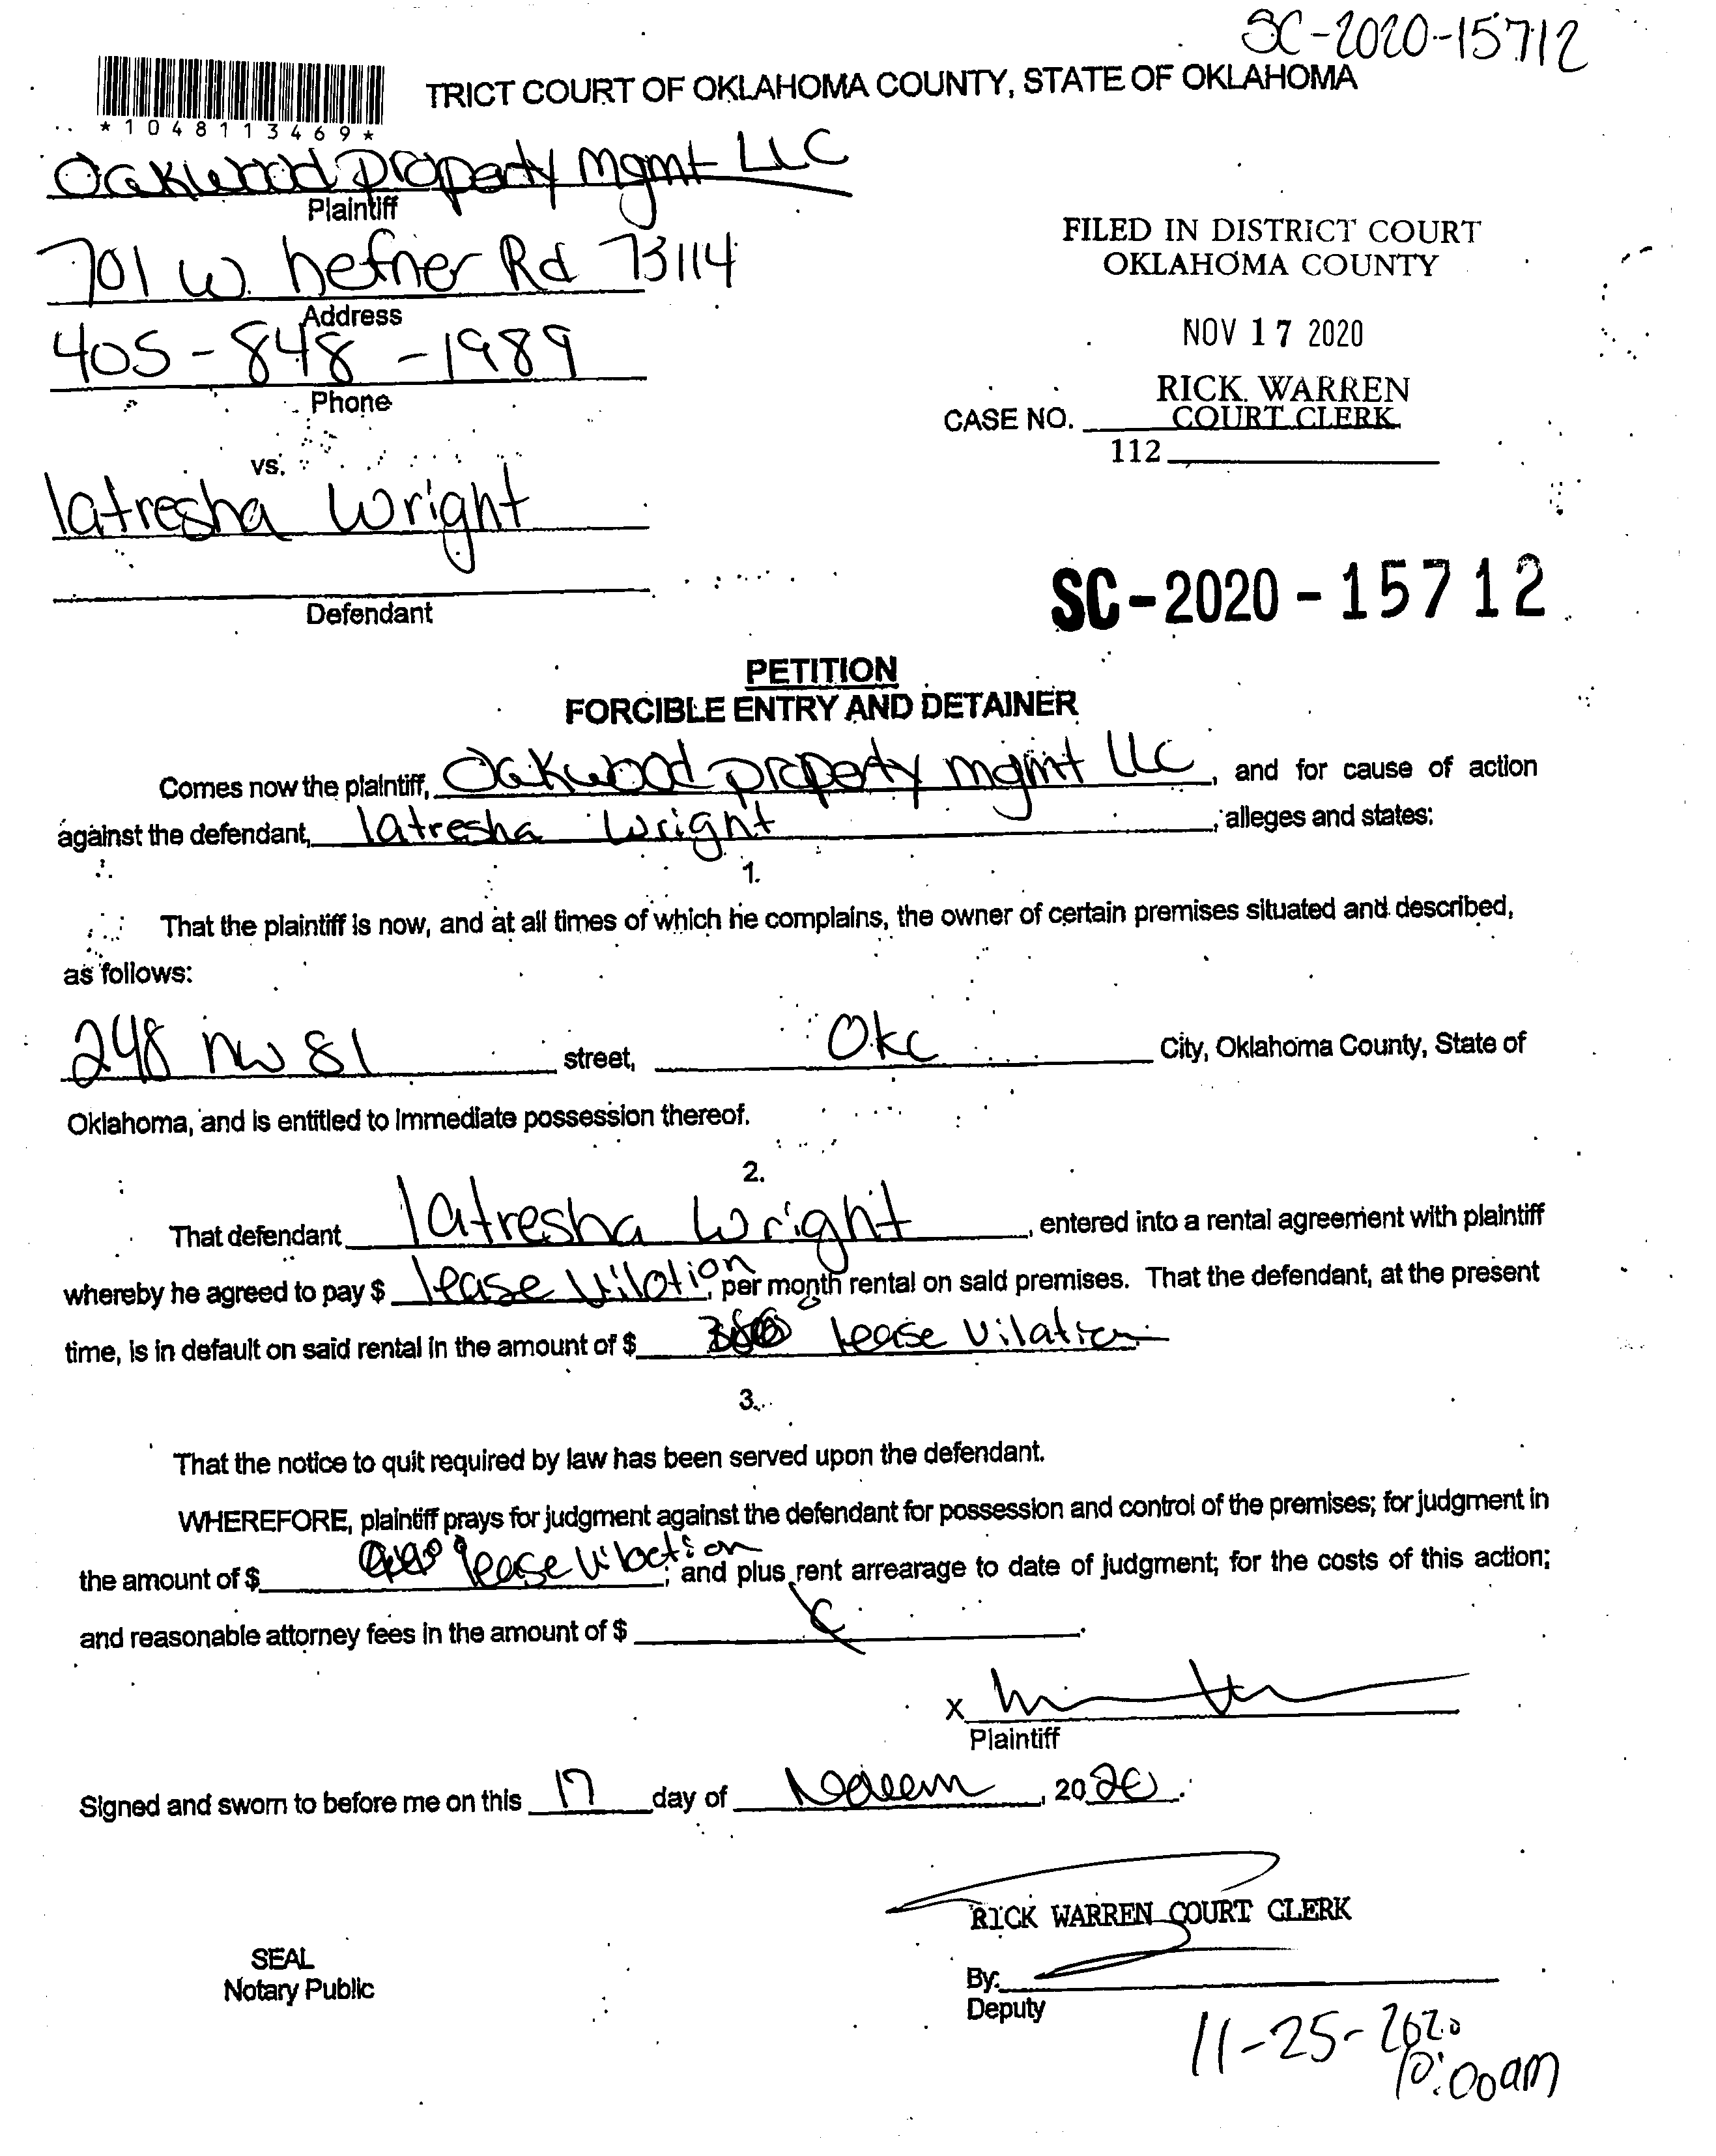 SC-2020-15712
TRICT COURT OF OKLAHOMA COUNTY, STATE OF OKLAHOMA
*1048113469*
Oakwood Property Mgmt LLC
Plaintiff
701 W. hefner Rd 73114
Address
405-848-1989
Phone
FILED IN DISTRICT COURT
OKLAHOMA COUNTY
NOV 17 2020
RICK WARREN
CASE NO. COURT CLERK
112
vs.
latresha Wright
Defendant
SC-2020-15712
PETITION
FORCIBLE ENTRY AND DETAINER
Comes now the plaintiff, Oakwood property mgmt LLC, and for cause of action
against the defendant, latresha Wright, alleges and states:
1.
That the plaintiff is now, and at all times of which he complains, the owner of certain premises situated and described,
as follows:
248 nw 81 street, Okc City, Oklahoma County, State of
Oklahoma, and is entitled to immediate possession thereof.
2.
That defendant latresha Wright, entered into a rental agreement with plaintiff
whereby he agreed to pay $ lease Vilation, per month rental on said premises. That the defendant, at the present
time, is in default on said rental in the amount of $ lease Vilation
3.
That the notice to quit required by law has been served upon the defendant.
WHEREFORE, plaintiff prays for judgment against the defendant for possession and control of the premises; for judgment in
the amount of $ lease Vilation; and plus rent arrearage to date of judgment; for the costs of this action;
and reasonable attorney fees in the amount of $
X
Plaintiff
Signed and sworn to before me on this 17 day of , 2020.
RICK WARREN COURT CLERK
SEAL
Notary Public
By:
Deputy
11-25-2020
10:00am